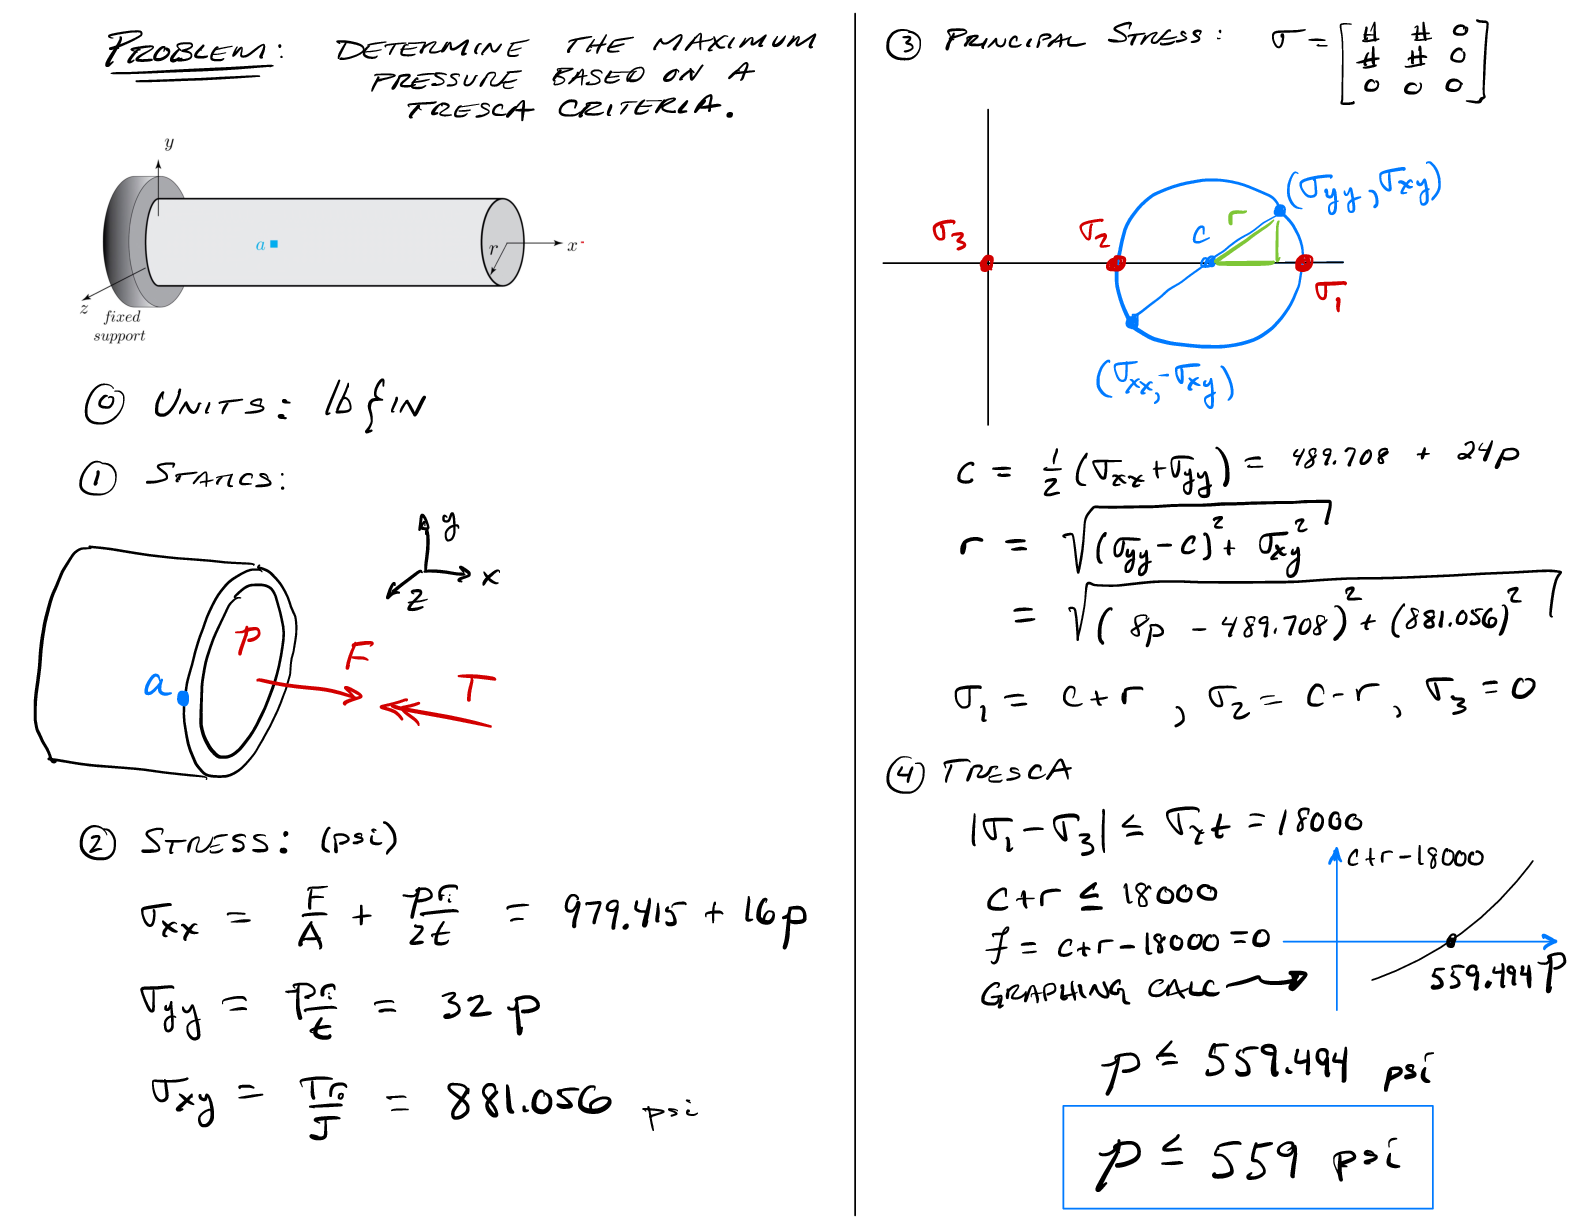 PROBLEM: DETERMINE THE MAXIMUM
PRESSURE BASED ON A
TRESCA CRITERIA.
y
a
r
x
z
fixed
support
⓪ UNITS: lb & IN
① STATICS:
y
x
z
P
F
a
T
② STRESS: (psi)
σxx = F/A + pri/2t = 979.415 + 16p
σyy = pri/t = 32p
σxy = Tro/J = 881.056 psi
③ PRINCIPAL STRESS: σ = [# # 0
# # 0
0 0 0]
(σyy, σxy)
r
σ3
σ2
c
σ1
(σxx, -σxy)
c = 1/2 (σxx + σyy) = 489.708 + 24p
r = √((σyy - c)² + σxy²)
= √((8p - 489.708)² + (881.056)²)
σ1 = c+r, σ2 = c-r, σ3 = 0
④ TRESCA
|σ1 - σ3| ≤ σxt = 18000
c+r-18000
c+r ≤ 18000
f = c+r-18000 = 0
GRAPHING CALC
559.494 P
p ≤ 559.494 psi
p ≤ 559 psi